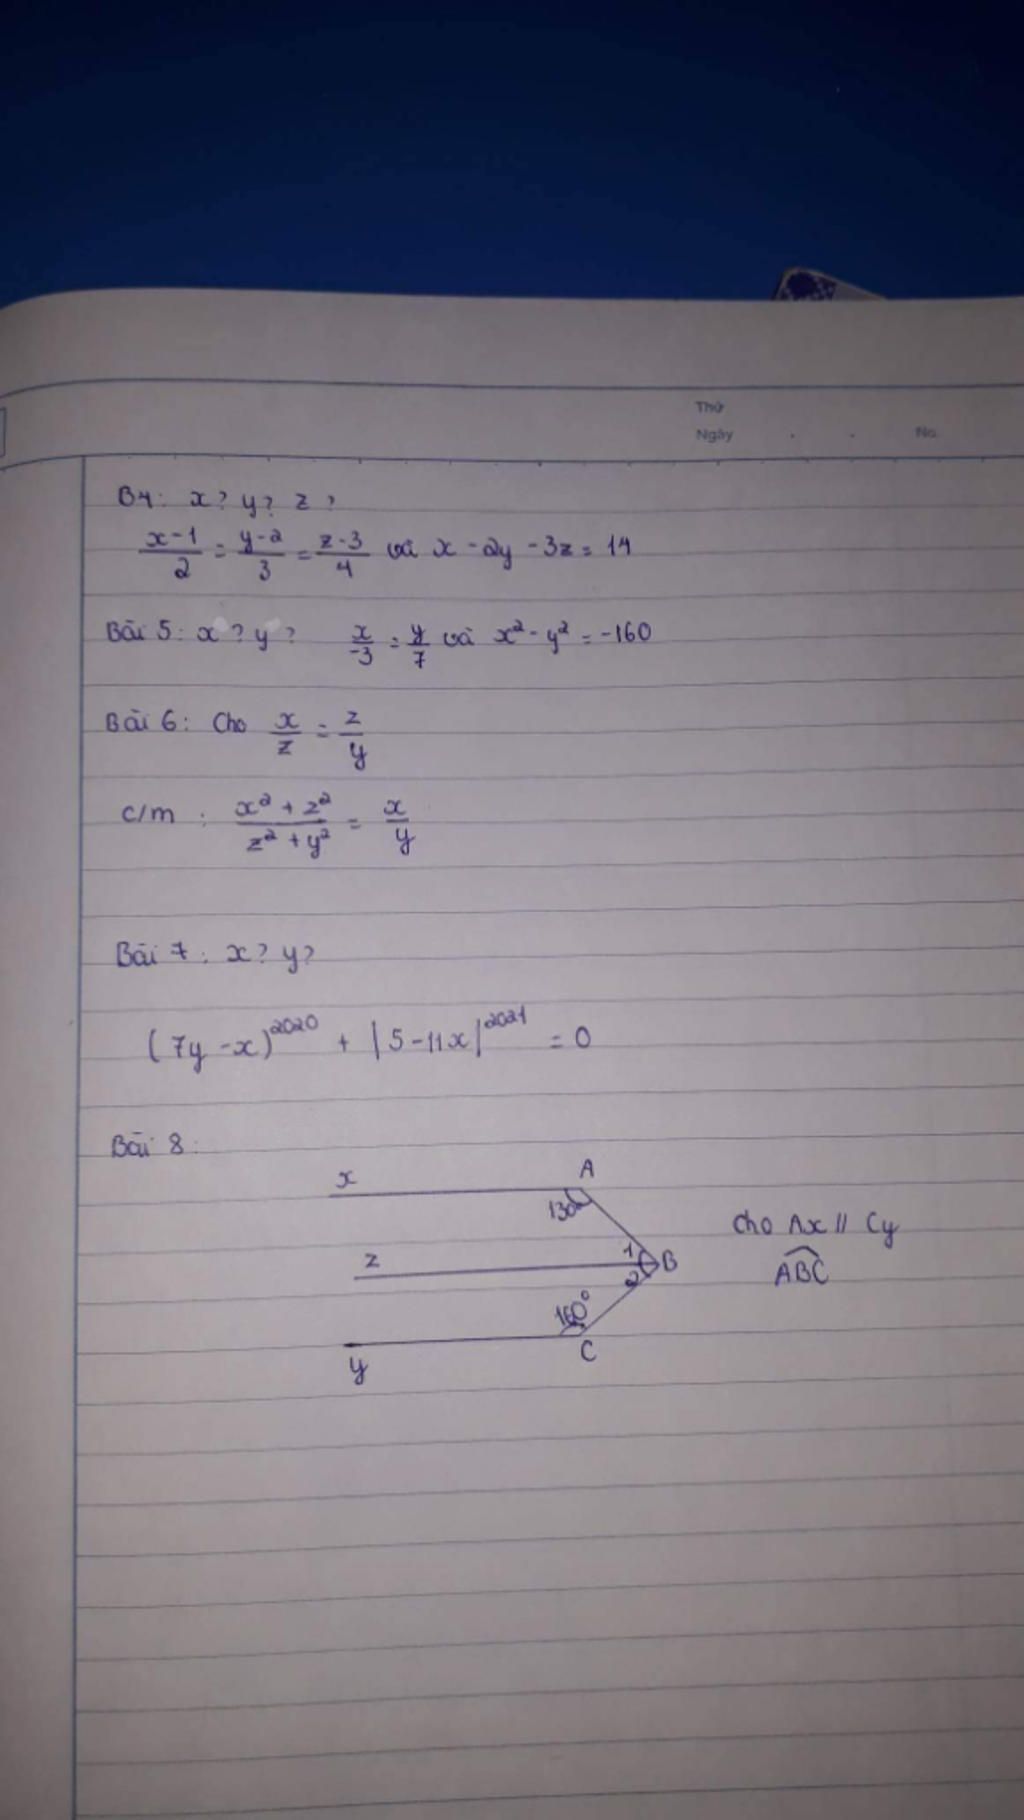 Thứ
Ngày . . No.
B4: x? y? z?
(x-1)/2 = (y-2)/3 = (z-3)/4 và x - 2y - 3z = 14
Bài 5: x? y? x/-3 = y/7 và x² - y² = -160
Bài 6: Cho x/z = z/y
C/m : (x² + z²)/(z² + y²) = x/y
Bài 7: x? y?
(7y - x)²⁰²⁰ + |5 - 11x|²⁰²¹ = 0
Bài 8:
x A
130
Cho Ax // Cy
z 1 B
2
ABC
160°
y C